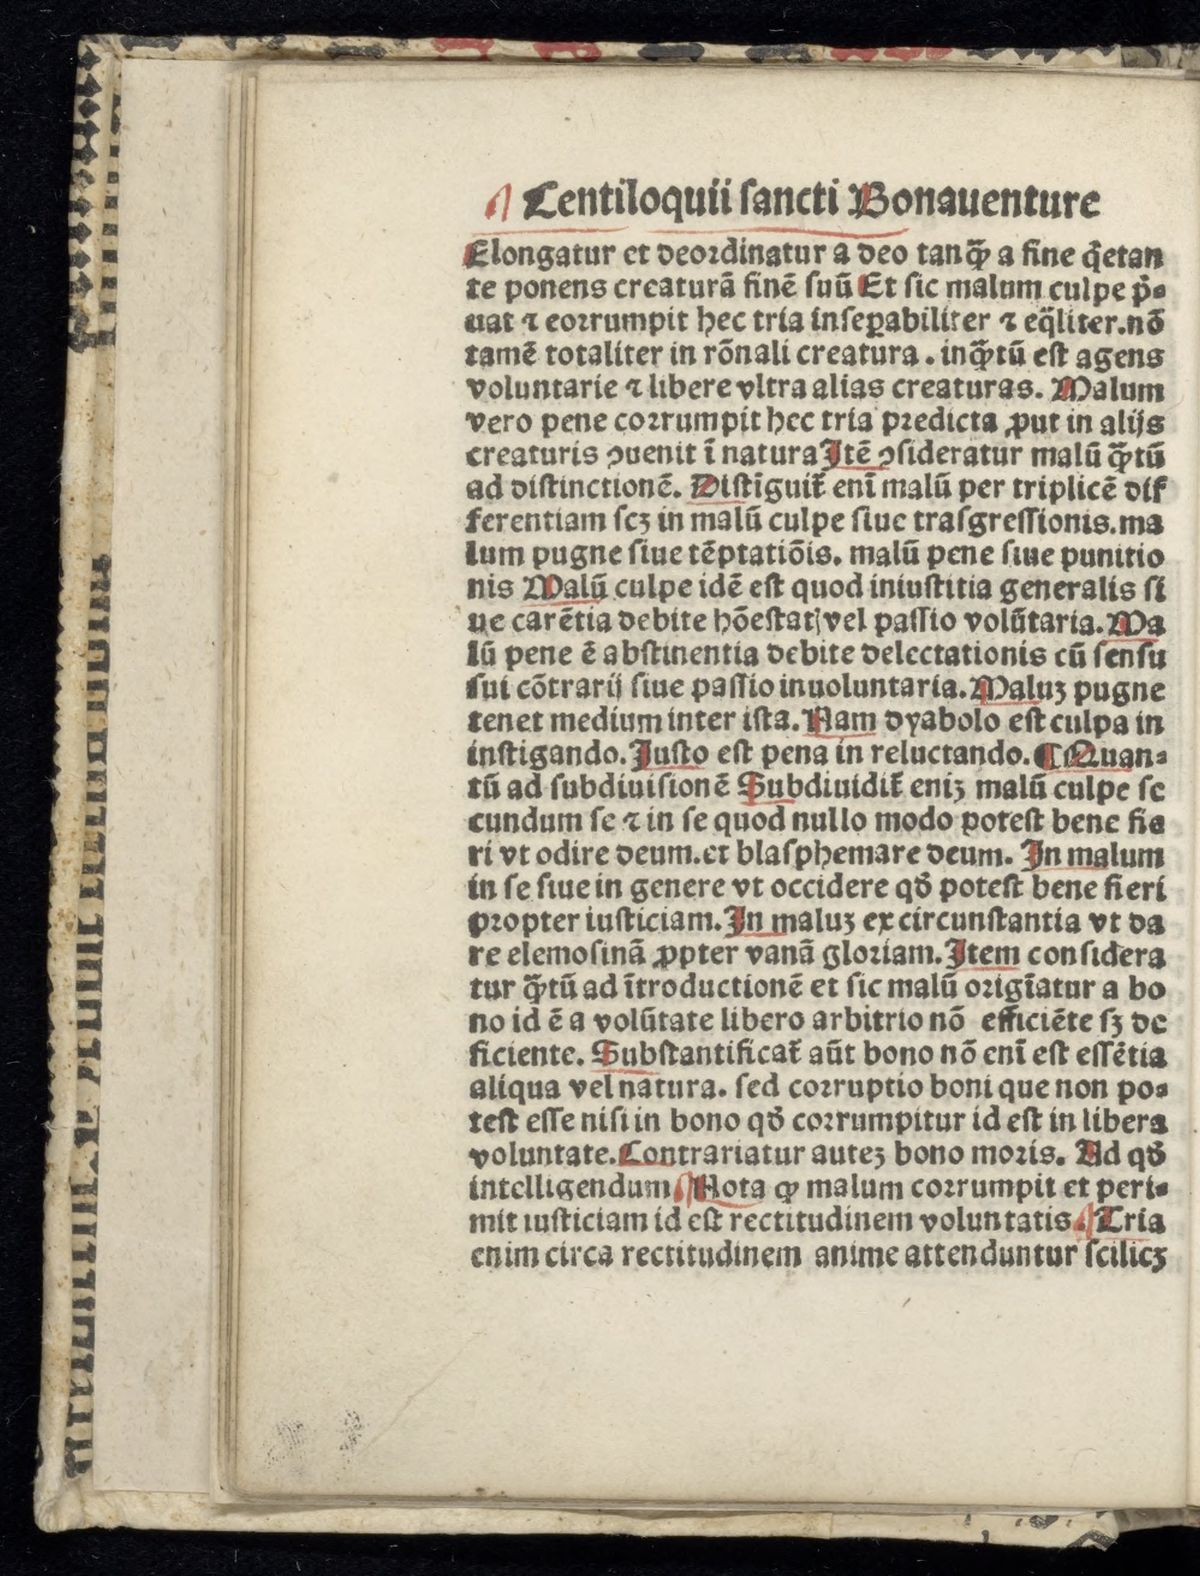 Centiloquii sancti Bonauenture
Elongatur et deordinatur a deo tanq̄ꝫ a fine q̄etan
te ponens creaturā finē suū Et sic malum culpe p̄-
uat ⁊ corrumpit hec tria inseꝑabiliter ⁊ eq̄liter. nō
tamē totaliter in rōnali creatura. inq̄ꝫtū est agens
voluntarie ⁊ libere vltra alias creaturas. Malum
vero pene corrumpit hec tria predicta ꝓut in alijs
creaturis ꝯuenit ī natura Jtē ꝯsideratur malū q̄ꝫtū
ad distinctionē. Distīguit̄ enī malū per triplicē dif
ferentiam scꝫ in malū culpe siue trasgressionis. ma
lum pugne siue tēptatiōis. malū pene siue punitio
nis Malū culpe idē est quod iniustitia generalis si
ue carētia debite hōestatꝭ vel passio volūtaria. Ma
lū pene ē abstinentia debite delectationis cū sensu
sui cōtrarij siue passio inuoluntaria. Maluꝫ pugne
tenet medium inter ista. Nam dyabolo est culpa in
instigando. Justo est pena in reluctando. ¶ Quan-
tū ad subdiuisionē Subdiuidit̄ eniꝫ malū culpe se
cundum se ⁊ in se quod nullo modo potest bene fie
ri vt odire deum. et blasphemare deum. Jn malum
in se siue in genere vt occidere qd̓ potest bene fieri
propter iusticiam. Jn maluꝫ ex circunstantia vt da
re elemosinā ꝓpter vanā gloriam. Jtem considera
tur q̄ꝫtū ad ītroductionē et sic malū origīatur a bo
no id ē a volūtate libero arbitrio nō efficiēte sꝫ de
ficiente. Substantificat̄ aūt bono nō enī est essētia
aliqua vel natura. sed corruptio boni que non po-
test esse nisi in bono qd̓ corrumpitur id est in libera
voluntate. Contrariatur auteꝫ bono moris. Ad qd̓
intelligendum Nota ꝙ malum corrumpit et peri-
mit iusticiam id est rectitudinem voluntatis Tria
enim circa rectitudinem anime attenduntur scilicꝫ